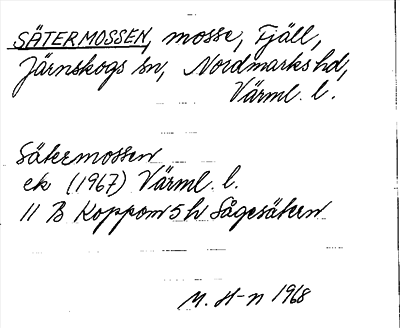 SÄTERMOSSEN, mosse, Fjäll,
Järnskogs sn, Nordmarks hd,
Värml. l.
Sätermossen
ek (1967) Värml. l.
11 B Koppom 5 h Sågesäken
M. H-n 1968